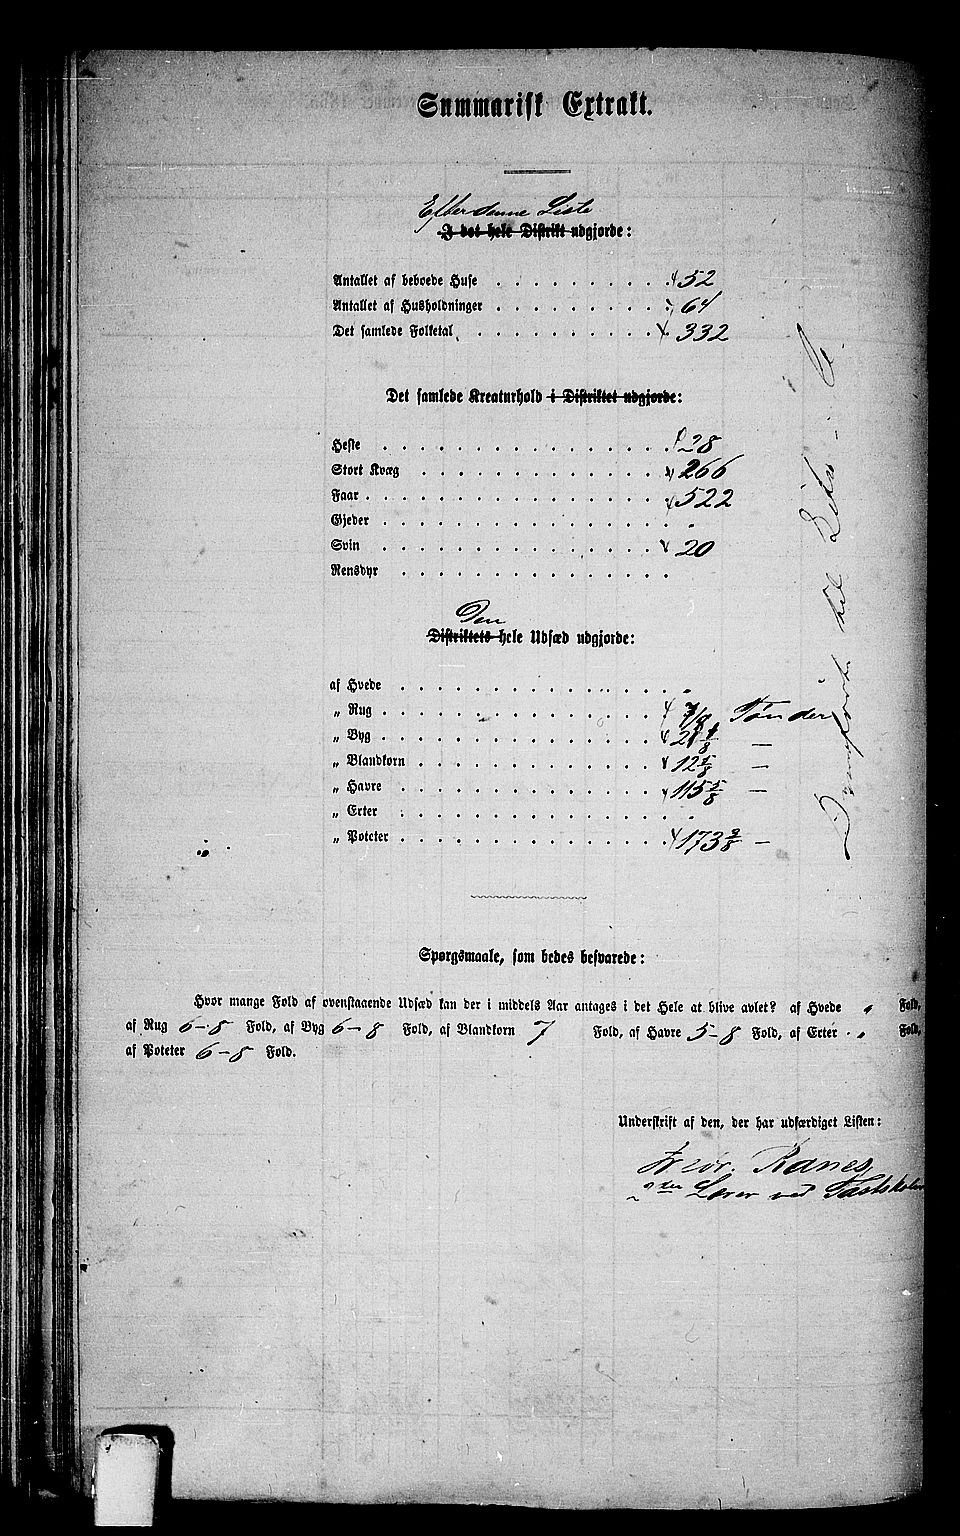 Summarisk Extrakt.
Efter denne Liste
I det hele Distrikt udgjorde:
Antallet af beboede Huse . . . . . . . . . . 52
Antallet af Husholdninger . . . . . . . . . . 64
Det samlede Folketal . . . . . . . . . . . 332
Det samlede Kreaturhold i Distriktet udgjorde:
Heste . . . . . . . . . . . . . . . . 28
Stort Kvæg . . . . . . . . . . . . . . 266
Faar . . . . . . . . . . . . . . . . . 522
Gjeder . . . . . . . . . . . . . . . . "
Svin . . . . . . . . . . . . . . . . 20
Rensdyr . . . . . . . . . . . . . . .
Den
Distriktets hele Udsæd udgjorde:
af Hvede . . . . . . . . . . . . . . . "
„ Rug . . . . . . . . . . . . . . . . 7/8 Tønder
„ Byg . . . . . . . . . . . . . . . . —
„ Blandkorn . . . . . . . . . . . . . 12 5/8 —
„ Havre . . . . . . . . . . . . . . . 115 5/8 —
„ Erter . . . . . . . . . . . . . . . "
„ Poteter . . . . . . . . . . . . . . 173 2/8 —
Spørgsmaale, som bedes besvarede:
Hvor mange Fold af ovenstaaende Udsæd kan der i middels Aar antages i det Hele at blive avlet? af Hvede " Fold,
af Rug 6-8 Fold, af Byg 6-8 Fold, af Blandkorn 7 Fold, af Havre 5-8 Fold, af Erter " Fold,
af Poteter 6-8 Fold.
Underskrift af den, der har udfærdiget Listen:
Fredr. Ranes,
Lærer ved Fastskolen
til